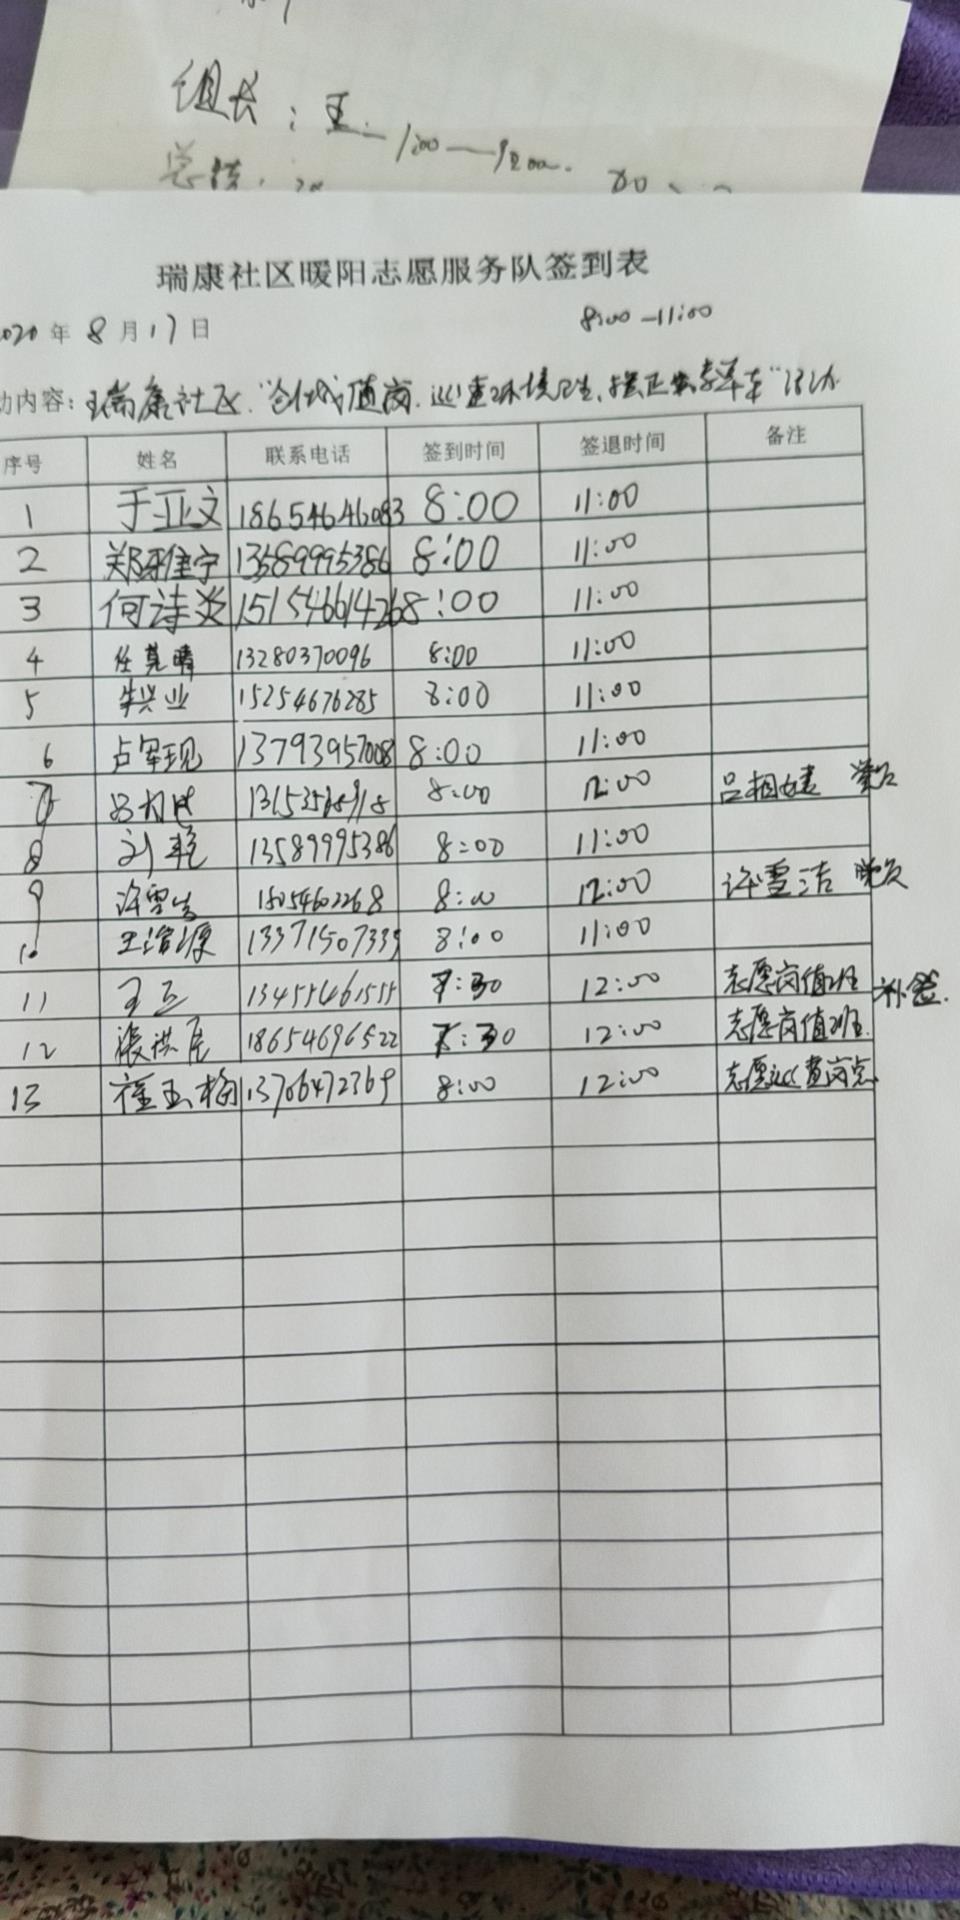 组长：王
1:00——12:00
瑞康社区暖阳志愿服务队签到表
2020年8月17日 8:00-11:00
动内容：瑞康社区"创城值岗.巡查环境卫生、摆正共享单车"活动
序号 姓名 联系电话 签到时间 签退时间 备注
1 于亚文 18654646083 8:00 11:00
2 郑雅宁 13589995386 8:00 11:00
3 何诗炎 15154661426 8:00 11:00
4 任晴 13280370096 8:00 11:00
5 牟兴业 15254676285 8:00 11:00
6 卢军现 13793957008 8:00 11:00
7 8:00 12:00 吕相婕
8 刘艳 13589995386 8:00 11:00
9 许雪洁 15054602268 8:00 12:00 许雪洁 晚次
10 王浩源 13371507339 8:00 11:00
11 13455461555 7:30 12:00 志愿岗值班 补签.
12 张洪民 18654696522 7:30 12:00 志愿岗值班.
13 玉梅 13706472369 8:00 12:00 志愿巡查岗点